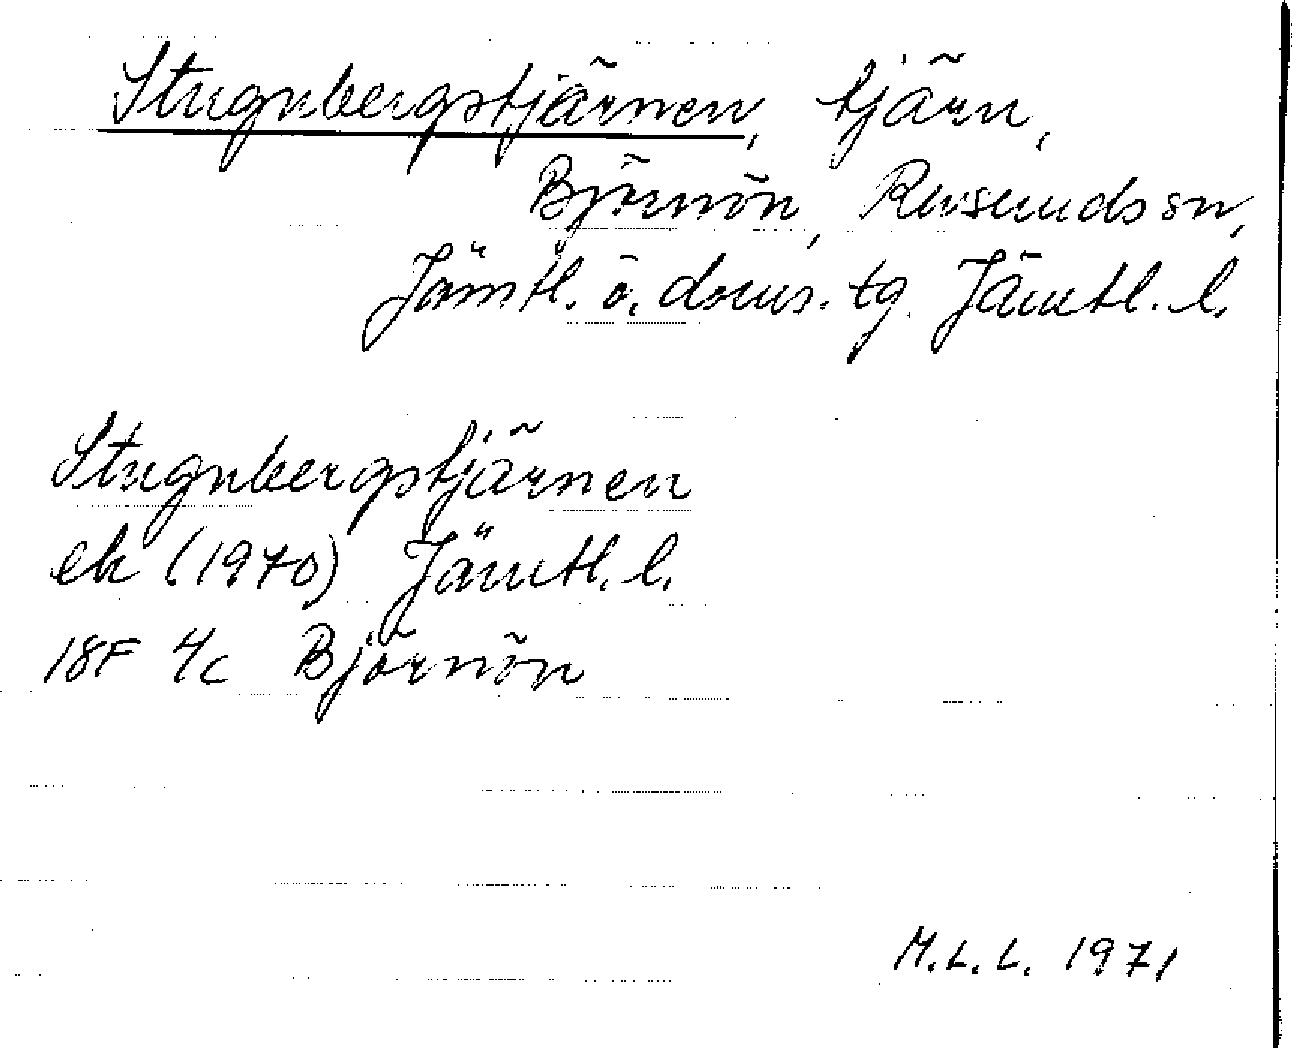 Stugnbergstjärnen, tjärn,
Björnön, Revsunds sn,
Jämtl. ö. doms. tg. Jämtl. l.
Stugnbergstjärnen
ek (1970) Jämtl. l.
18F 4c Björnön
M.L.L. 1971